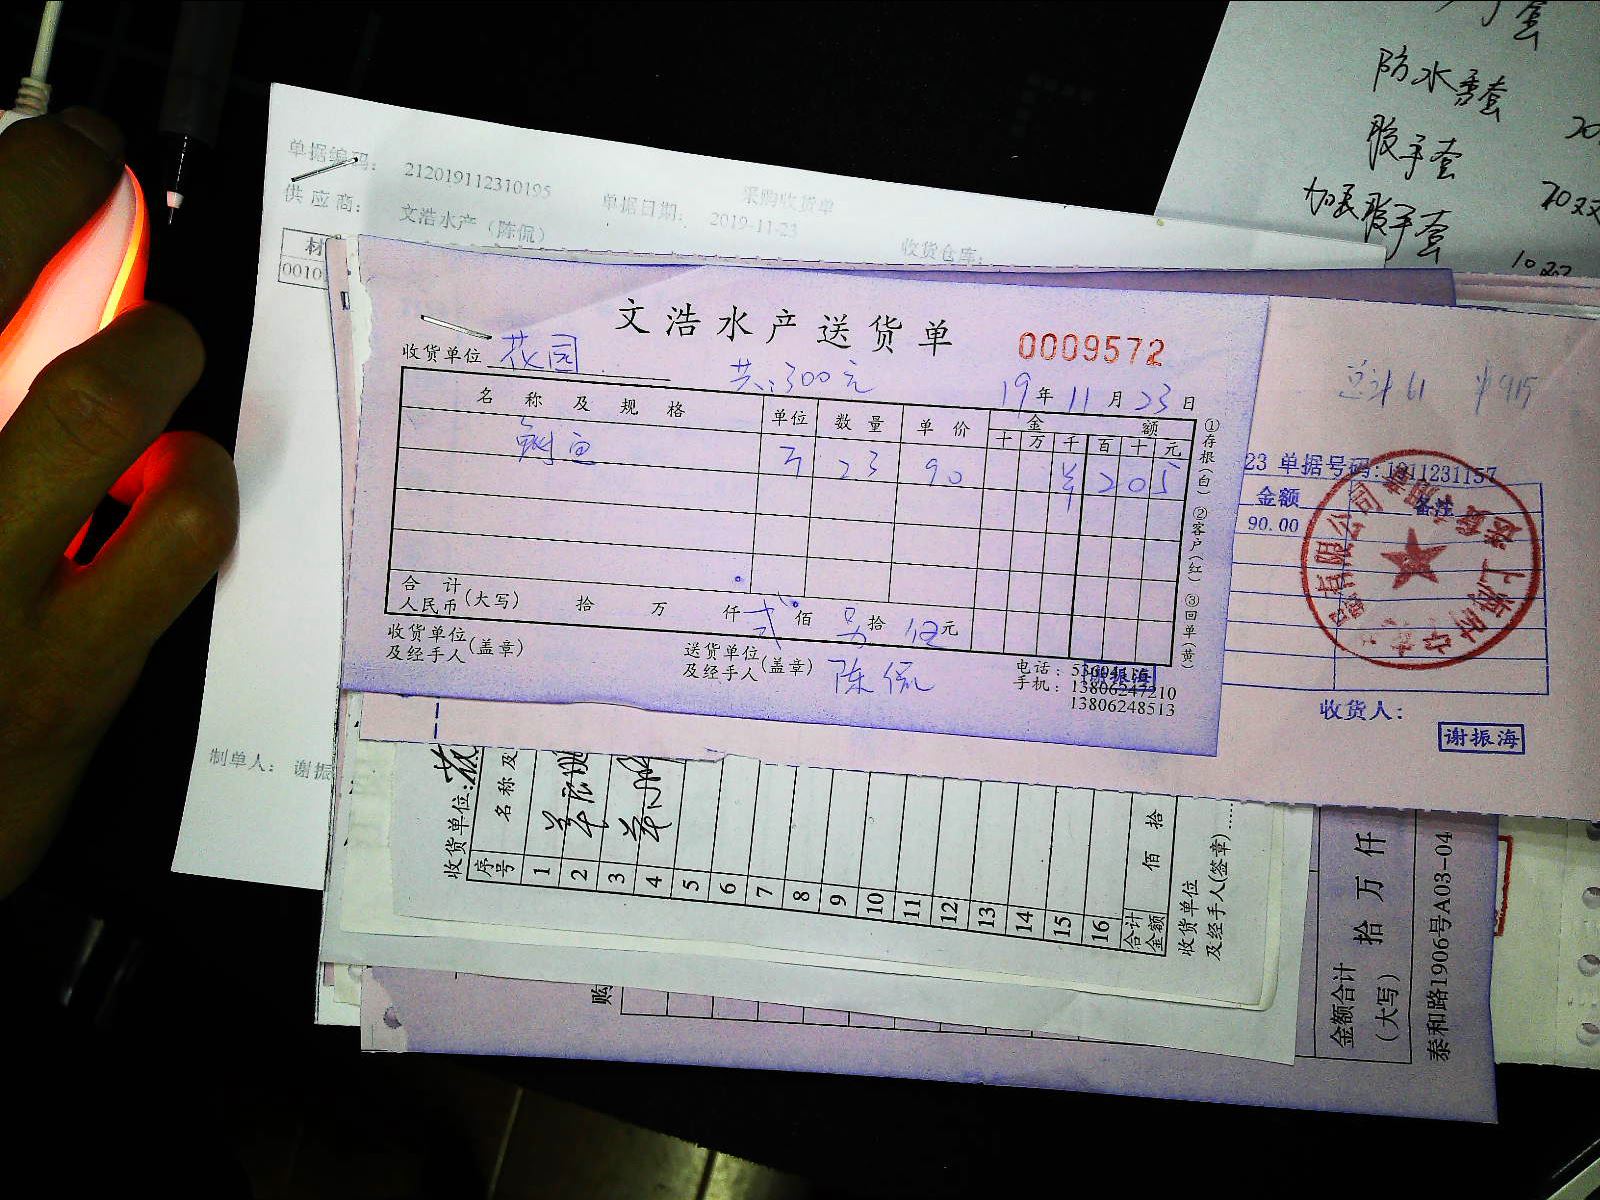 防水雪套
胶手套
加長胶手套
20双
10双
单据编码：
212019112310195
采购收货单
供应商：
文浩水产（陈侃）
单据日期：
2019-11-23
收货仓库：
材
0010
文浩水产送货单
0009572
收货单位 花园
共:300元
19年11月23日
名称及规格 单位 数量 单价 金额
十 万 千 百 十 元
23 90 ¥ 2 0 5
合计
人民币(大写) 拾 万 仟 弍 佰 另 拾 伍 元
收货单位
及经手人(盖章)
送货单位
及经手人(盖章) 陈侃
电话：
手机：13806247210
13806248513
①存根(白) ②客户(红) ③回单(黄)
¥ 915
23 单据号码:1911231157
金额 备注
90.00
有限公司
收货人：
谢振海
制单人： 谢振
收货单位:
序号 名称及
1
2
3
4
5
6
7
8
9
10
11
12
13
14
15
16
合计金额 佰 拾
收货单位
及经手人(签章)
购
金额合计
(大写) 拾 万 仟
泰和路1906号A03-04